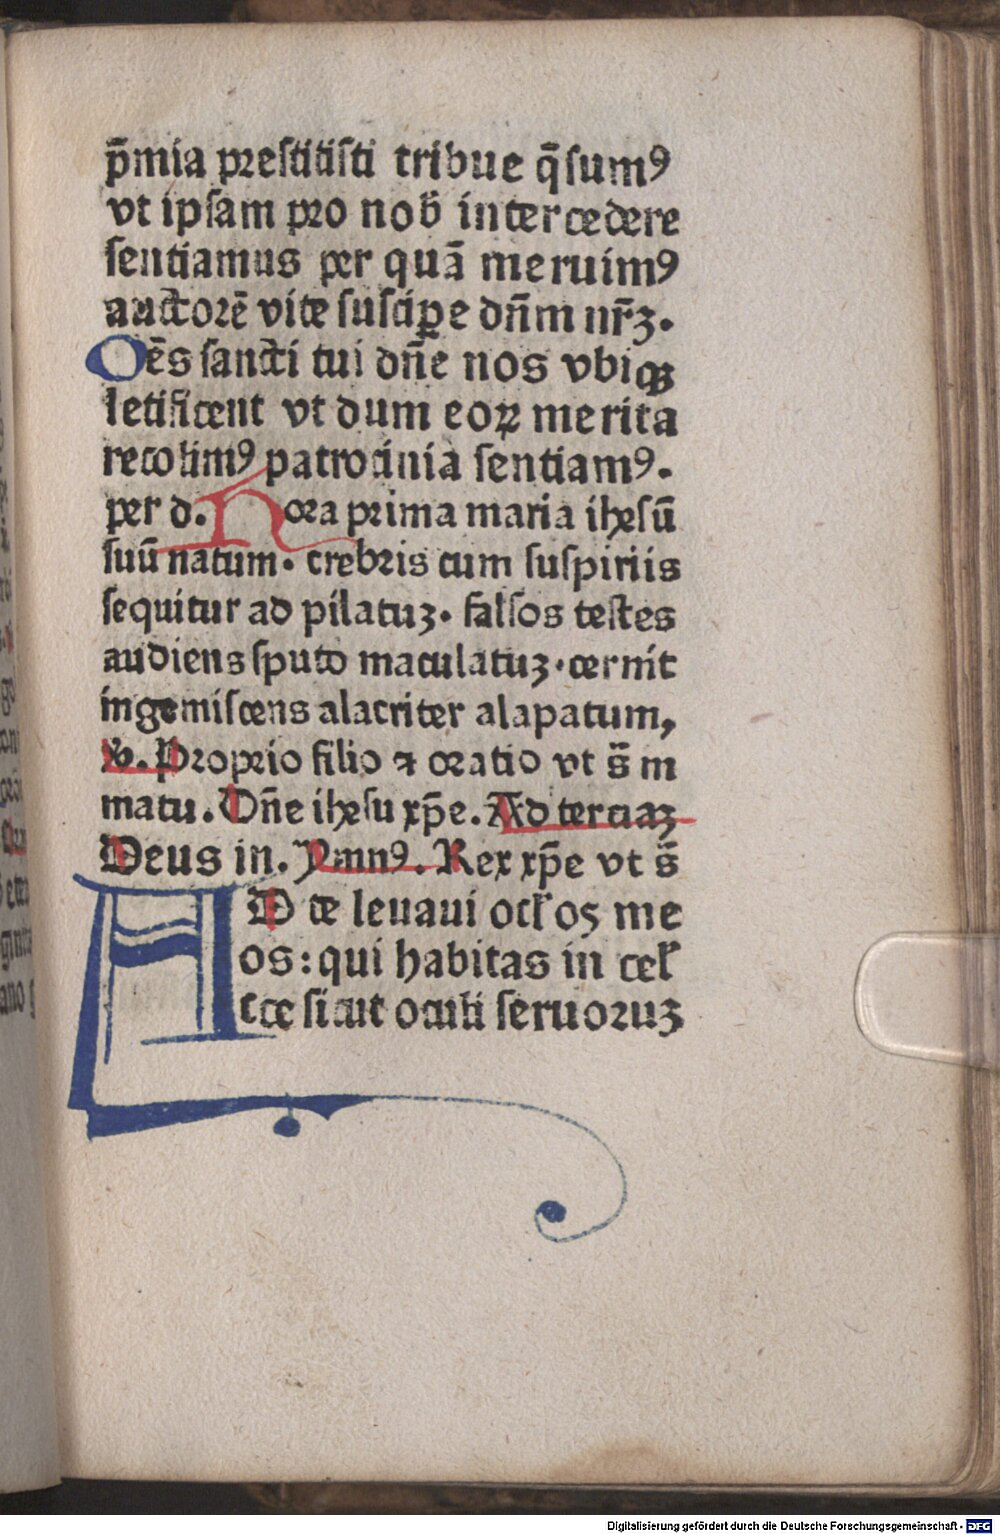 p̄mia prestitisti tribue q̄sumꝰ
vt ipsam pro nob̄ intercedere
sentiamus per quā meruimꝰ
auctorē vite suscipe dn̄m nr̄ꝫ.
Oēs sancti tui dn̄e nos vbiqꝫ
letificent vt dum eoꝝ merita
recolimꝰ patrocinia sentiamꝰ.
per d. Hora prima maria ihesū
suū natum. crebris cum suspiriis
sequitur ad pilatuꝫ. falsos testes
audiens sputo maculatuꝫ. cernit
ingemiscens alacriter alapatum,
℣. Proprio filio ⁊ oratio vt s̄ m
matu. Dn̄e ihesu xp̄e. Ad terciaꝫ
Deus in. Ymnꝰ. Rex xp̄e vt s̄
AD te leuaui ocl̄os me
os: qui habitas in cel̄
Ecce sicut oculi seruoruꝫ
Digitalisierung gefördert durch die Deutsche Forschungsgemeinschaft - DFG